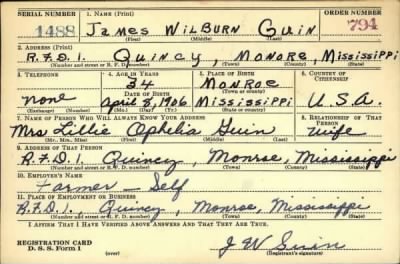 SERIAL NUMBER 1. NAME (Print) ORDER NUMBER
1488 James Wilburn Guin 794
(First) (Middle) (Last)
2. ADDRESS (Print)
R.F.D.1. Quincy, Monore, Mississippi
(Number and street or R. F. D. number) (Town) (County) (State)
3. TELEPHONE 4. AGE IN YEARS 5. PLACE OF BIRTH 6. COUNTRY OF CITIZENSHIP
34 Monroe
DATE OF BIRTH (Town or county)
none April 8, 1906 Mississippi U.S.A.
(Exchange) (Number) (Mo.) (Day) (Yr.) (State or country)
7. NAME OF PERSON WHO WILL ALWAYS KNOW YOUR ADDRESS 8. RELATIONSHIP OF THAT PERSON
Mrs Lillie Ophelia Guin wife
(Mr., Mrs., Miss) (First) (Middle) (Last)
9. ADDRESS OF THAT PERSON
R.F.D.1. Quincy, Monroe, Mississippi
(Number and street or R. F. D. number) (Town) (County) (State)
10. EMPLOYER'S NAME
Farmer — Self
11. PLACE OF EMPLOYMENT OR BUSINESS
R.F.D.1. Quincy, Monroe, Mississippi
(Number and street or R. F. D. number) (Town) (County) (State)
I AFFIRM THAT I HAVE VERIFIED ABOVE ANSWERS AND THAT THEY ARE TRUE.
REGISTRATION CARD
D. S. S. Form 1 (over) J W Guin
(Registrant's signature)